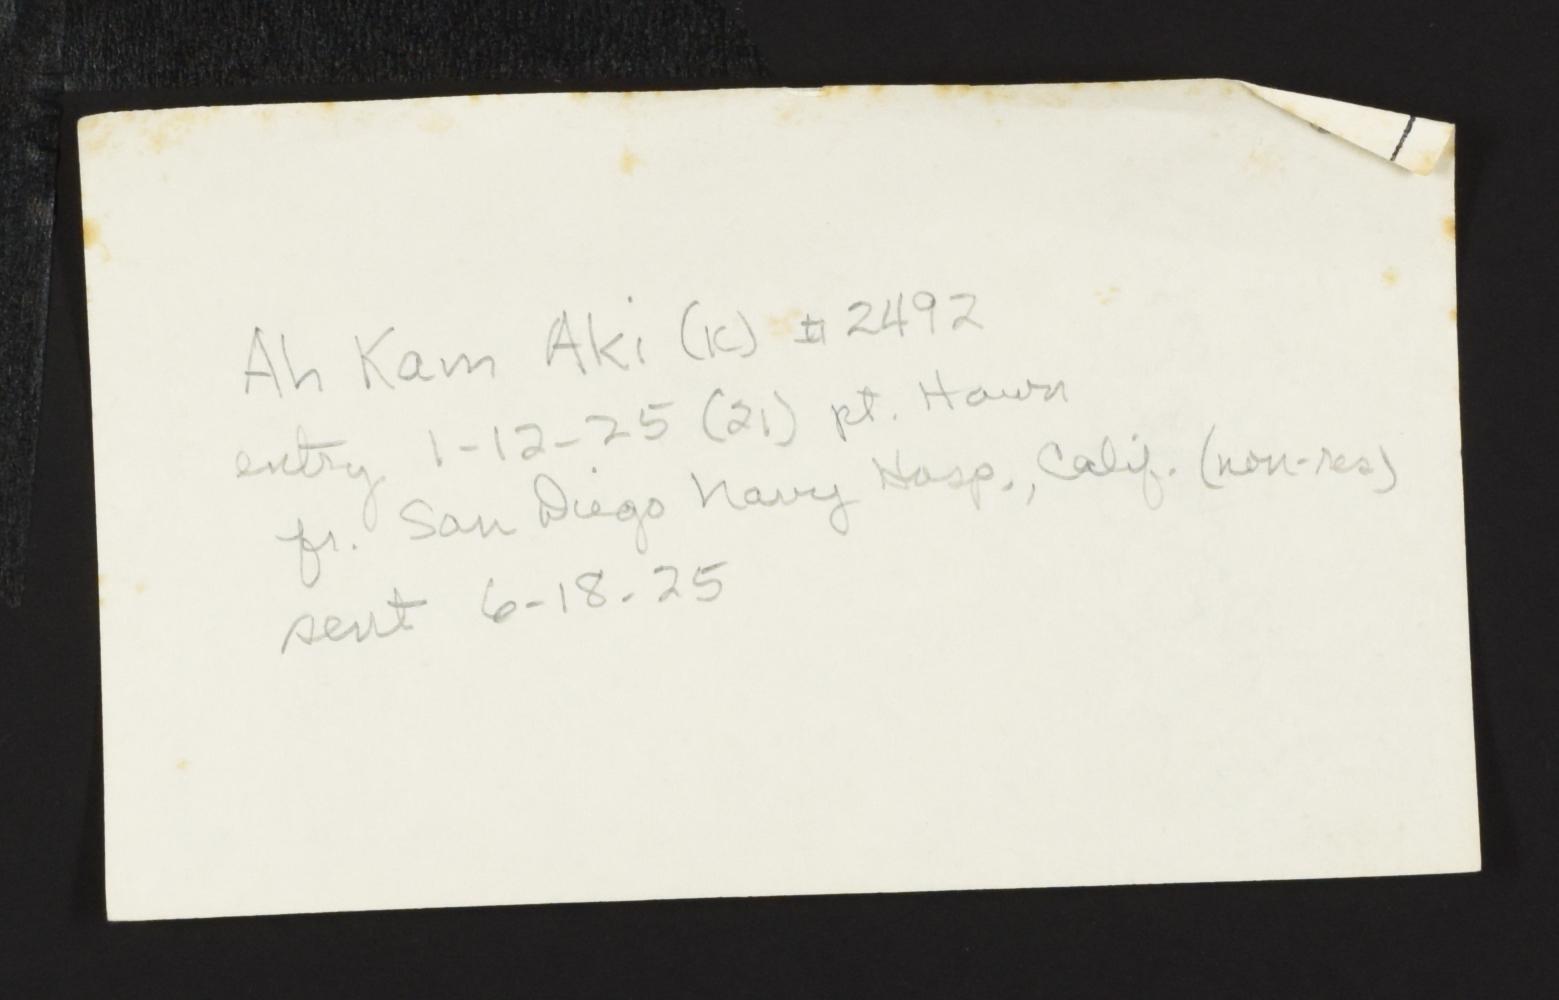 Ah Kam Aki (K) # 2492
entry 1-12-25 (21) pt. Hawn
fr. San Diego Navy Hosp., Calif. (non-res)
sent 6-18-25